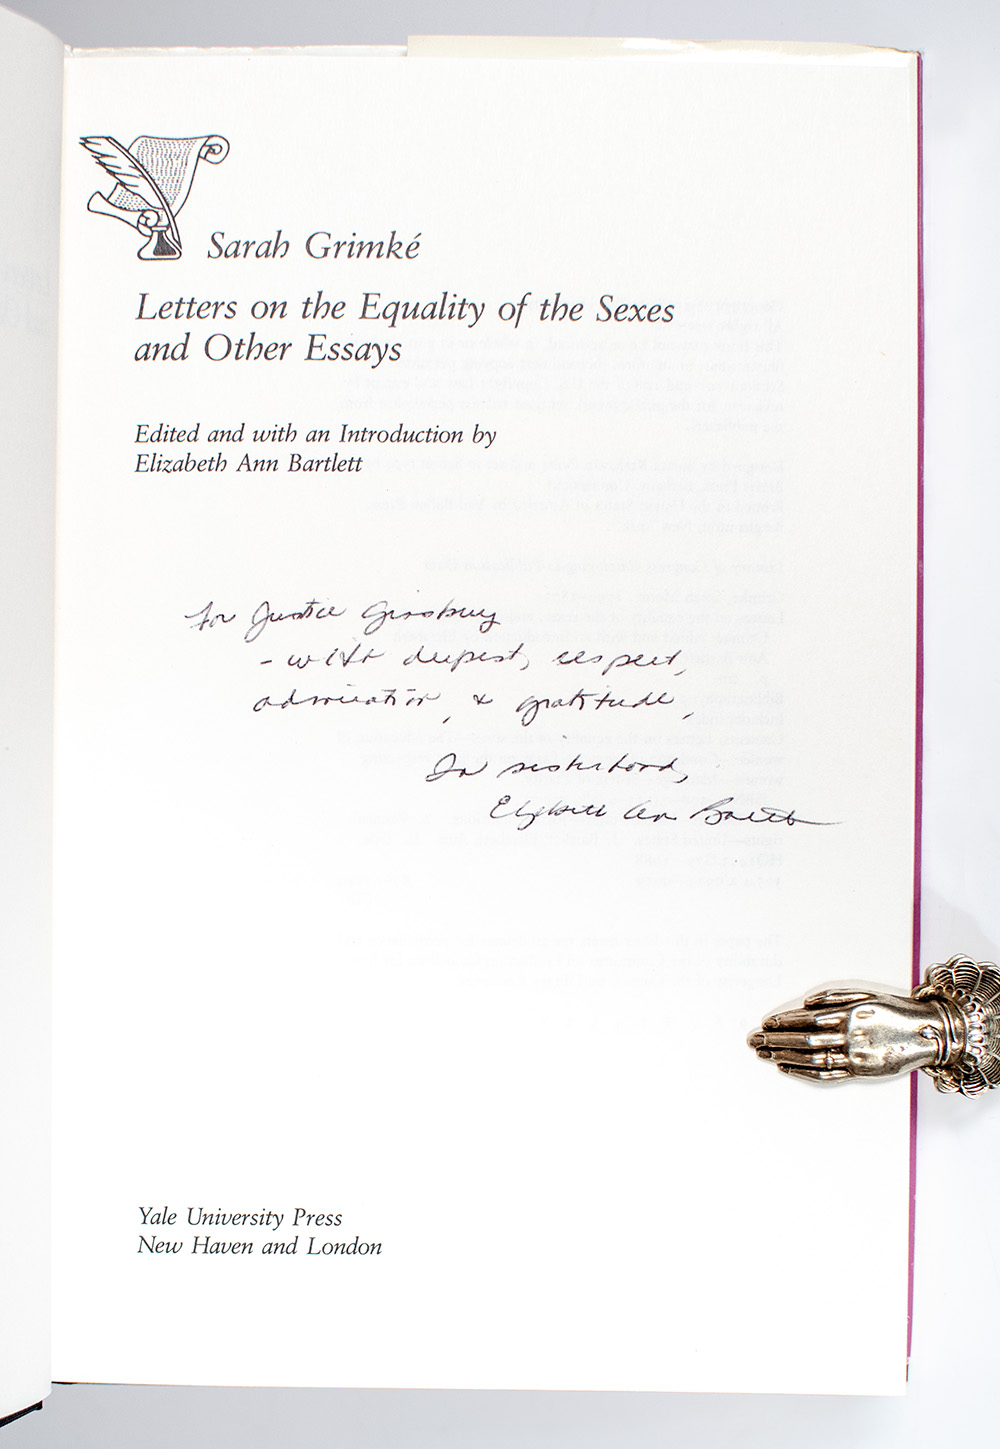 Sarah Grimké
Letters on the Equality of the Sexes
and Other Essays
Edited and with an Introduction by
Elizabeth Ann Bartlett
For Justice Ginsburg
- with deepest respect,
admiration, & gratitude,
In sisterhood,
Elizabeth Ann Bartlett
Yale University Press
New Haven and London